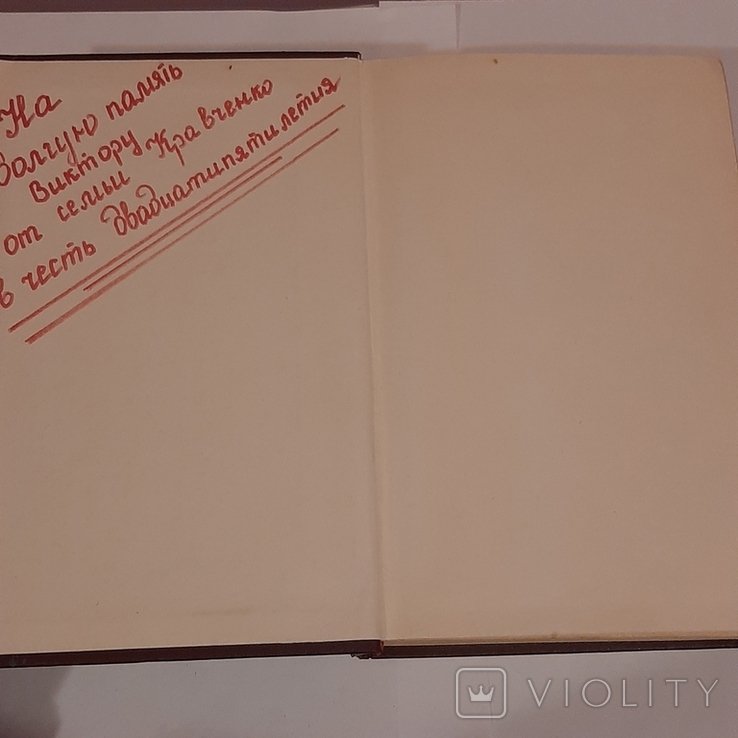 На
долгую память
Виктору
от семьи Кравченко
в честь двадцатипятилетия
VIOLITY